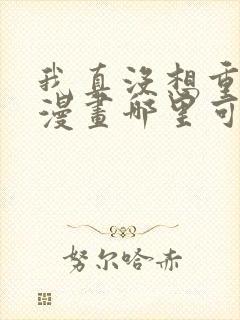 我真没想重
漫畫哪里可
努尔哈赤